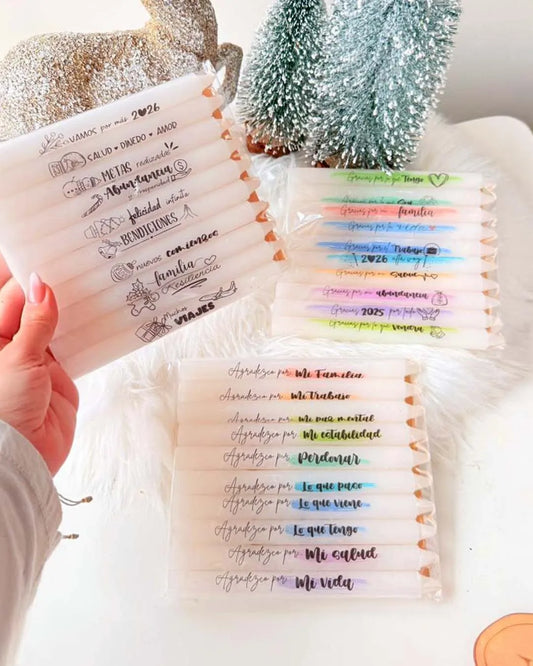 VAMOS por más 2026
SALUD ♥ DINERO ♥ AMOR
METAS realizadas
Abundancia
& prosperidad
felicidad infinita
BENDICIONES
NUEVOS comienzos
familia
Resiliencia
Muchos
VIAJES
Gracias por lo que Tengo
Gracias por mi familia
Gracias por
Gracias por el Trabajo
2026 allá voy
Gracias por mi Salud
Gracias por mi abundancia
Gracias 2025 por todo
Gracias por lo que vendrá
Agradezco por Mi Familia
Agradezco por Mi trabajo
Agradezco por Mi paz mental
Agradezco por Mi estabilidad
Agradezco por Perdonar
Agradezco por Lo que paso
Agradezco por Lo que viene
Agradezco por Lo que tengo
Agradezco por Mi salud
Agradezco por Mi vida